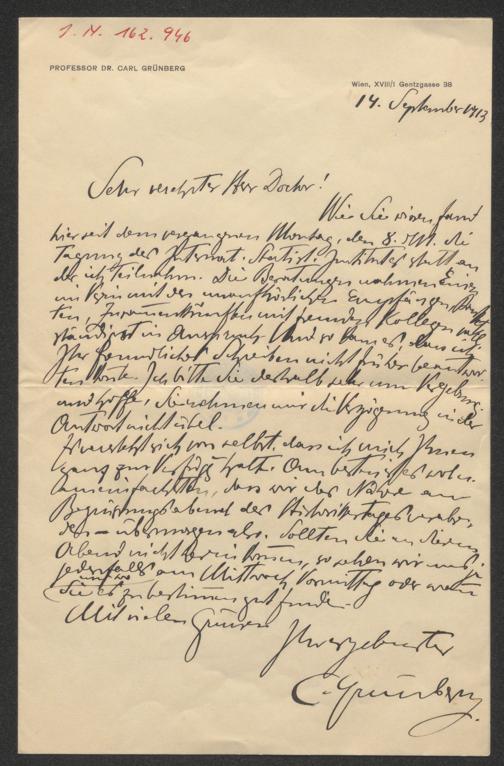 J. N. 162.946
PROFESSOR DR. CARL GRÜNBERG
Wien, XVIII/1 Gentzgasse 38
14. September 1913
Sehr verehrter Herr Doctor!
Wie Sie wissen, fand
hier seit dem vergangenen Montag, den 8. die
Tagung des Internat. Statist. Institutes statt an
der ich teilnahm. Die Beratungen nahmen Einen
im Verein mit den unaufhörlichen Empfängen,
ten, Zusammenkünften mit fremden Kollegen voll-
ständigst in Anspruch. Und so kam es, dass ich
Ihr freundliches Schreiben nicht früher beantwor-
ten konnte. Ich bitte Sie deshalb sehr um Vergebung
und hoffe, Sie nehmen mir die Verzögerung in der
Antwort nicht übel.
Es versteht sich von selbst, dass ich mich Ihnen
ganz zur Verfügung halte. Am besten ist es wohl
am einfachsten, dass wir das Nähere am
Begrüssungsabend des Historikertages verabre-
den – übermorgen also. Sollten Sie an diesem
Abend nicht können, so sehen wir uns ja
jedenfalls am Mittwoch Vormittag oder wann
und wo
Sie es zu bestimmen gut finden.
Mit vielen Grüssen
Ihr ergebenster
C. Grünberg